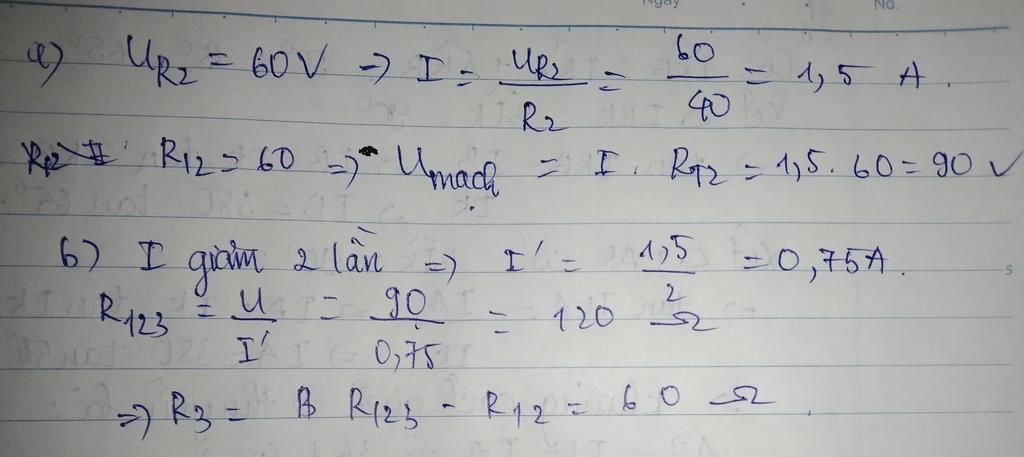 Ngày No.
a) U_R2 = 60V => I = U_R2/R2 = 60/40 = 1,5 A.
R12 = 60 => Umạch = I. R12 = 1,5. 60 = 90 V
b) I giảm 2 lần => I' = 1,5/2 = 0,75A.
R123 = U/I' = 90/0,75 = 120 Ω
=> R3 = R123 - R12 = 60 Ω.